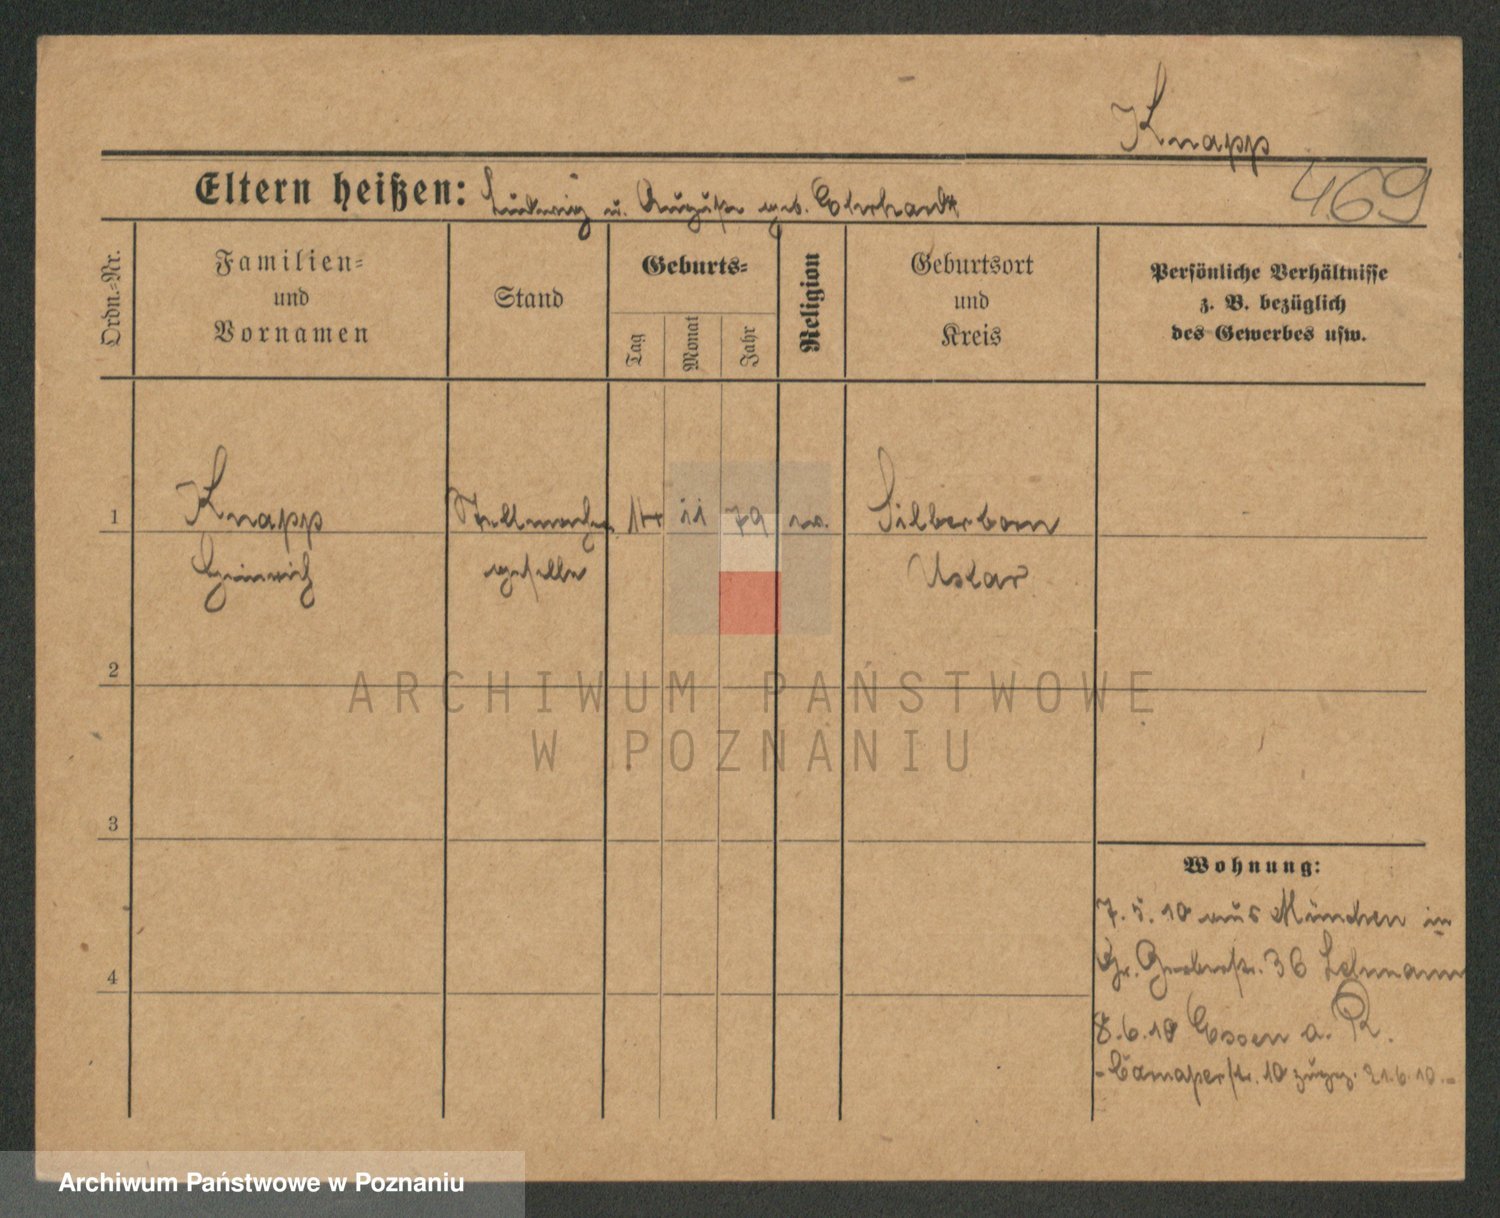 Knapp
469
Eltern heißen: Ludwig u. Auguste geb. Eberhardt
Ordn.-Nr.
Familien-
und
Vornamen
Stand
Geburts-
Tag
Monat
Jahr
Religion
Geburtsort
und
Kreis
Persönliche Verhältnisse
z. B. bezüglich
des Gewerbes usw.
1
Knapp
Heinrich
Stellmacher
geselle
14
11
79
ev.
Silberborn
Uslar
2
3
4
Wohnung:
7. 5. 10 aus München in
Gr. Gerberstr. 36 Lehmann
8. 6. 10 Essen a. R.
10 zugez. 21.6.10.-
ARCHIWUM PAŃSTWOWE
W POZNANIU
Archiwum Państwowe w Poznaniu